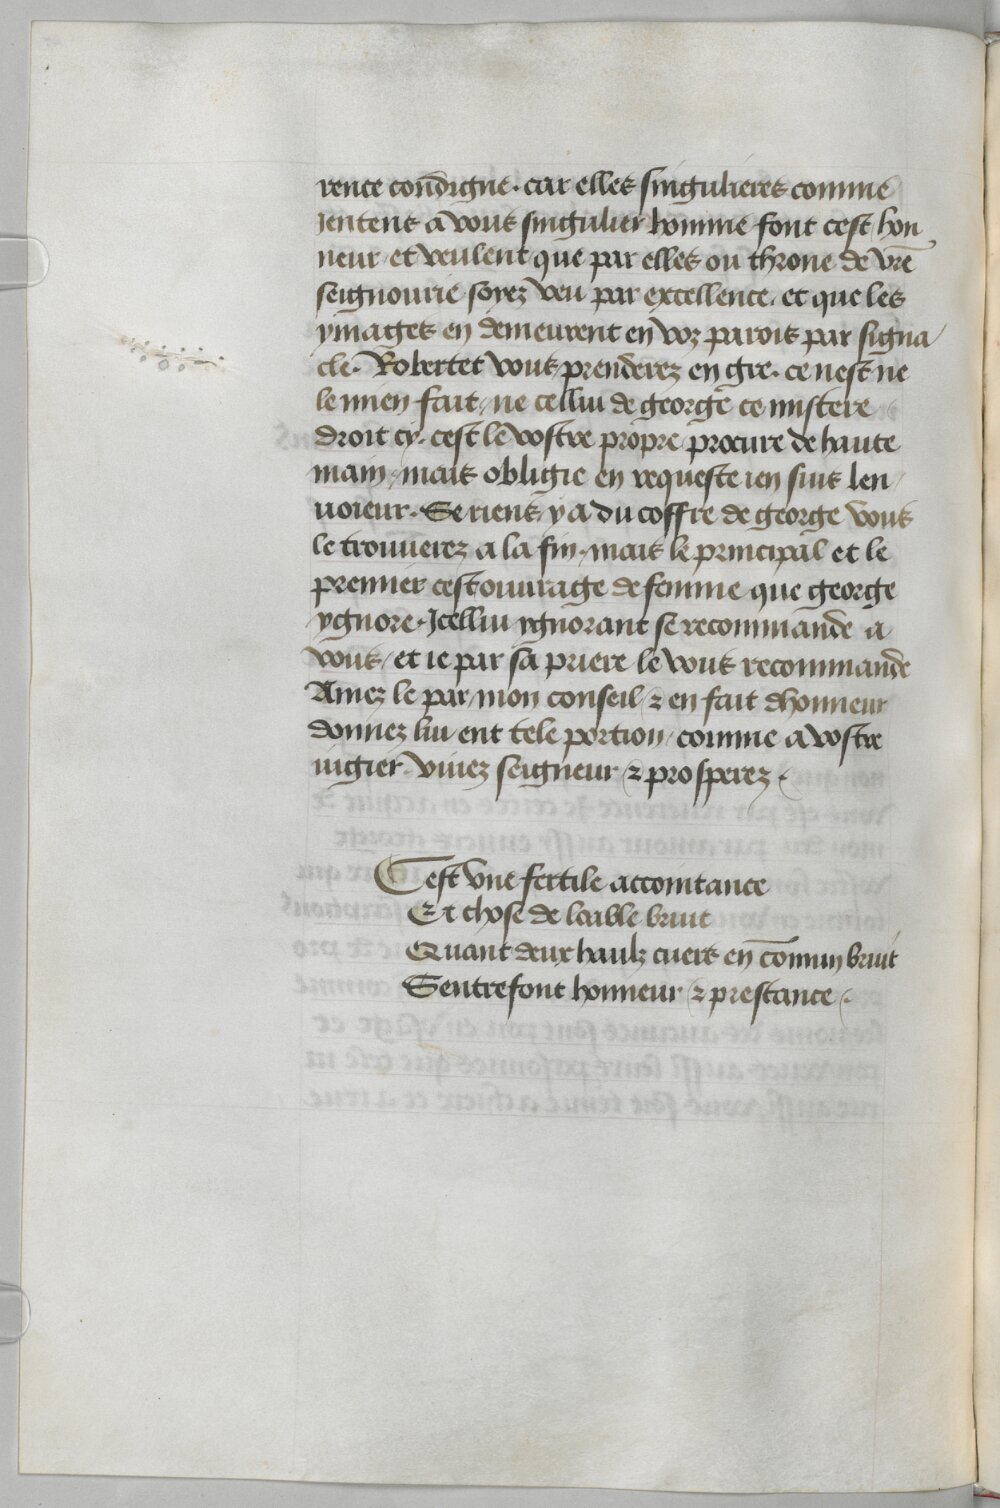 rence condigne. car elles singulieres comme
Jentens a vous singulier homme font cest hon
neur et veulent que par elles ou throne de vre̅
seignourie soyez veu par excellence. et que les
ymages en demeurent en voz parois par signa
cle. Robertet vous prenderez en gre. ce nest ne
le mien fait, ne cellui de george ce mistere
droit cy. cest le vostre propre procure de haute
main, mais obligie en requeste ien suis len
uoieur. Se riens y a du coffre de george vous
le trouuerez a la fin. mais le principal et le
premier cest ouurage de femme que george
ygnore. Jcellui ygnorant se recommande a
vous, et ie par sa priere le vous recommande
Amez le par mon conseil, & en fait dhonneur
donnez lui ent tele portion, comme a vostre
uigier. viuez seigneur & prosperez.
Cest vne fertile accointance
Et chose de loable bruit
Quant deux haulz cuers en co̅mun bruit
Sentrefont honneur & prestance.